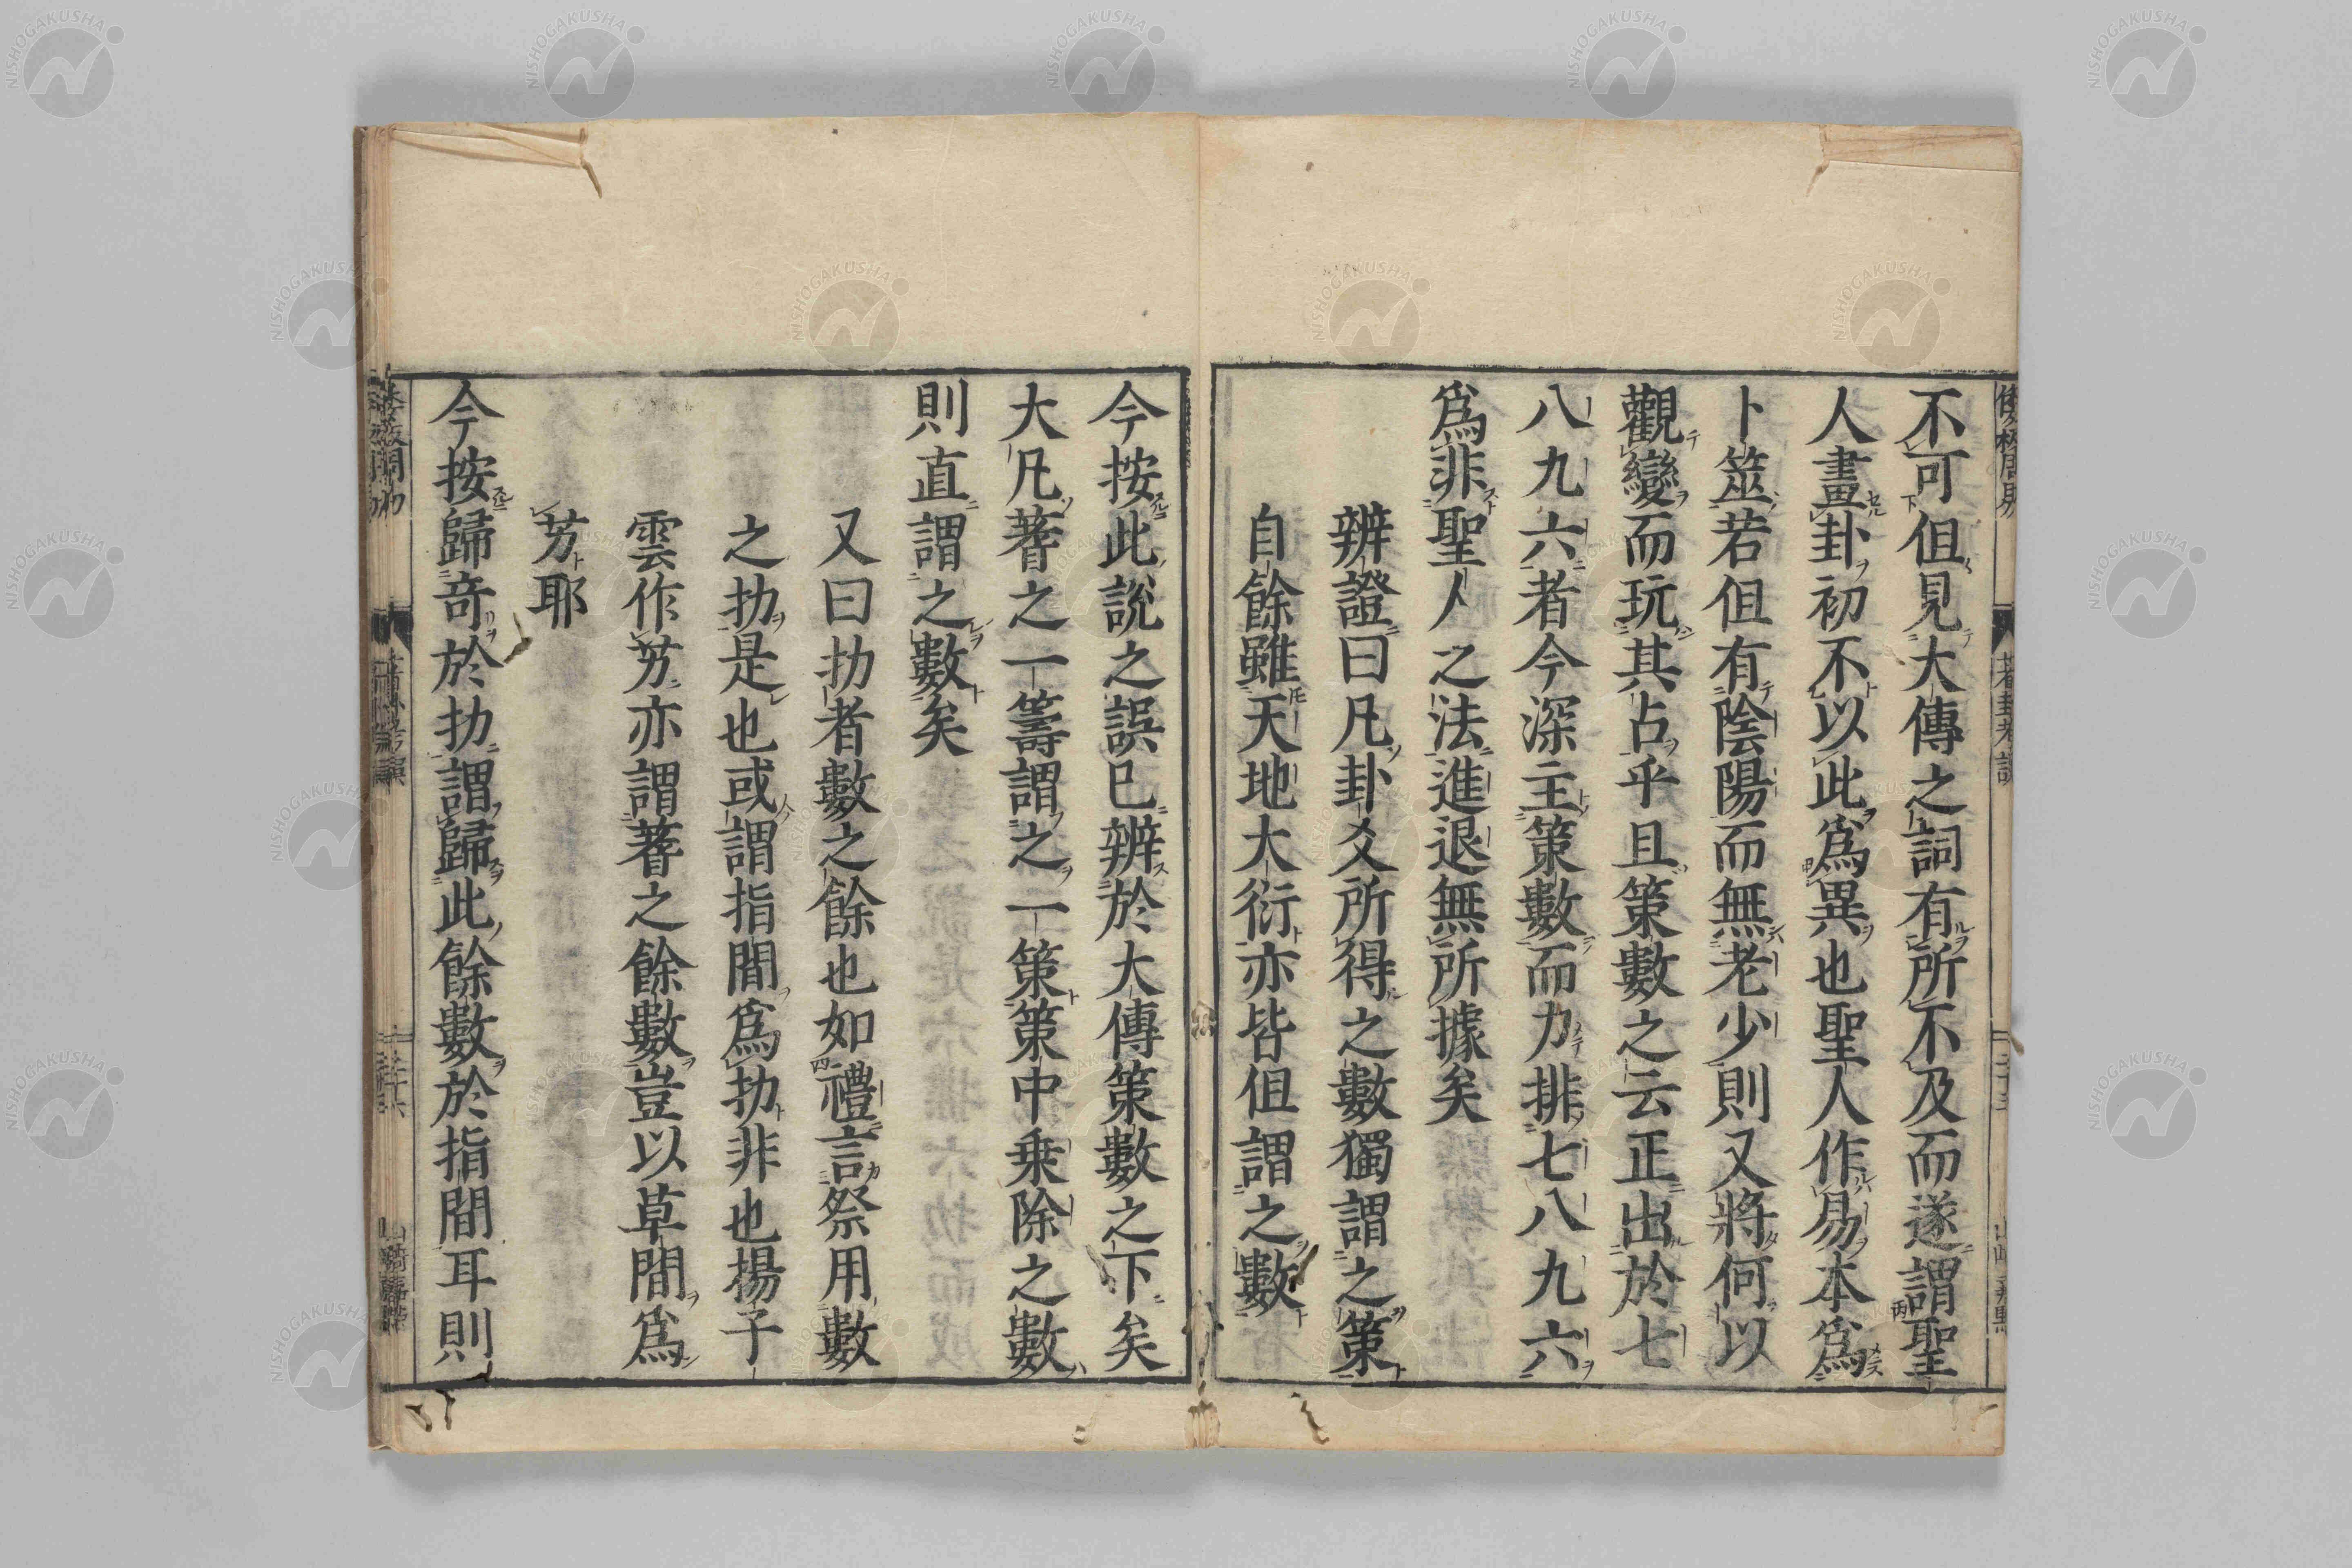 不可但見大傳之詞有所不及而遂謂聖
人畫卦初不以此爲異也聖人作易本爲
卜筮若但有陰陽而無老少則又將何以
觀變而玩其占乎且策數之云正出於七
八九六者今深主策數而力排七八九六
爲非聖人之法進退無所據矣
辨證曰凡卦爻所得之數獨謂之策
自餘雖天地大衍亦皆但謂之數
今按此說之誤已辨於大傳策數之下矣
大凡蓍之一籌謂之一策策中乗除之數
則直謂之數矣
又曰扐者數之餘也如禮言祭用數
之扐是也或謂指間爲扐非也揚子
雲作艻亦謂蓍之餘數豈以草間爲
艻耶
今按歸奇於扐謂歸此餘數於指間耳則
NISHOGAKUSHA